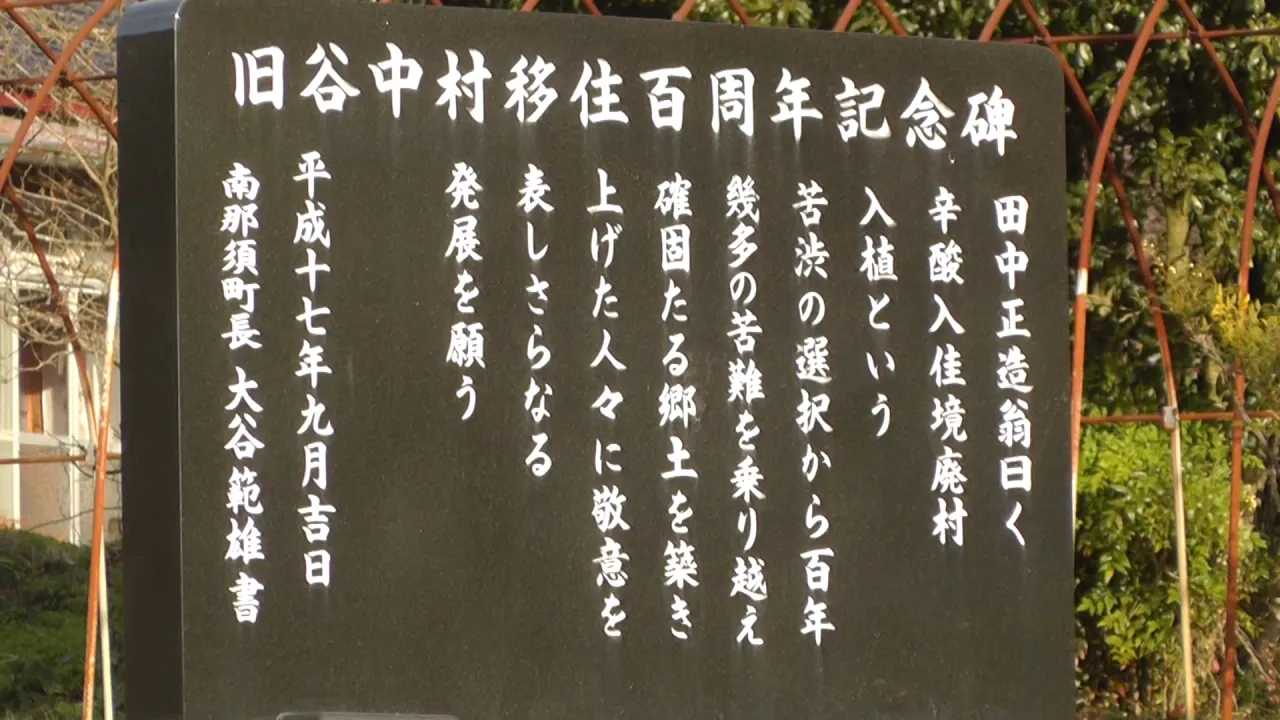 旧谷中村移住百周年記念碑
田中正造翁曰く
辛酸入佳境廃村
入植という
苦渋の選択から百年
幾多の苦難を乗り越え
確固たる郷土を築き
上げた人々に敬意を
表しさらなる
発展を願う
平成十七年九月吉日
南那須町長 大谷範雄書